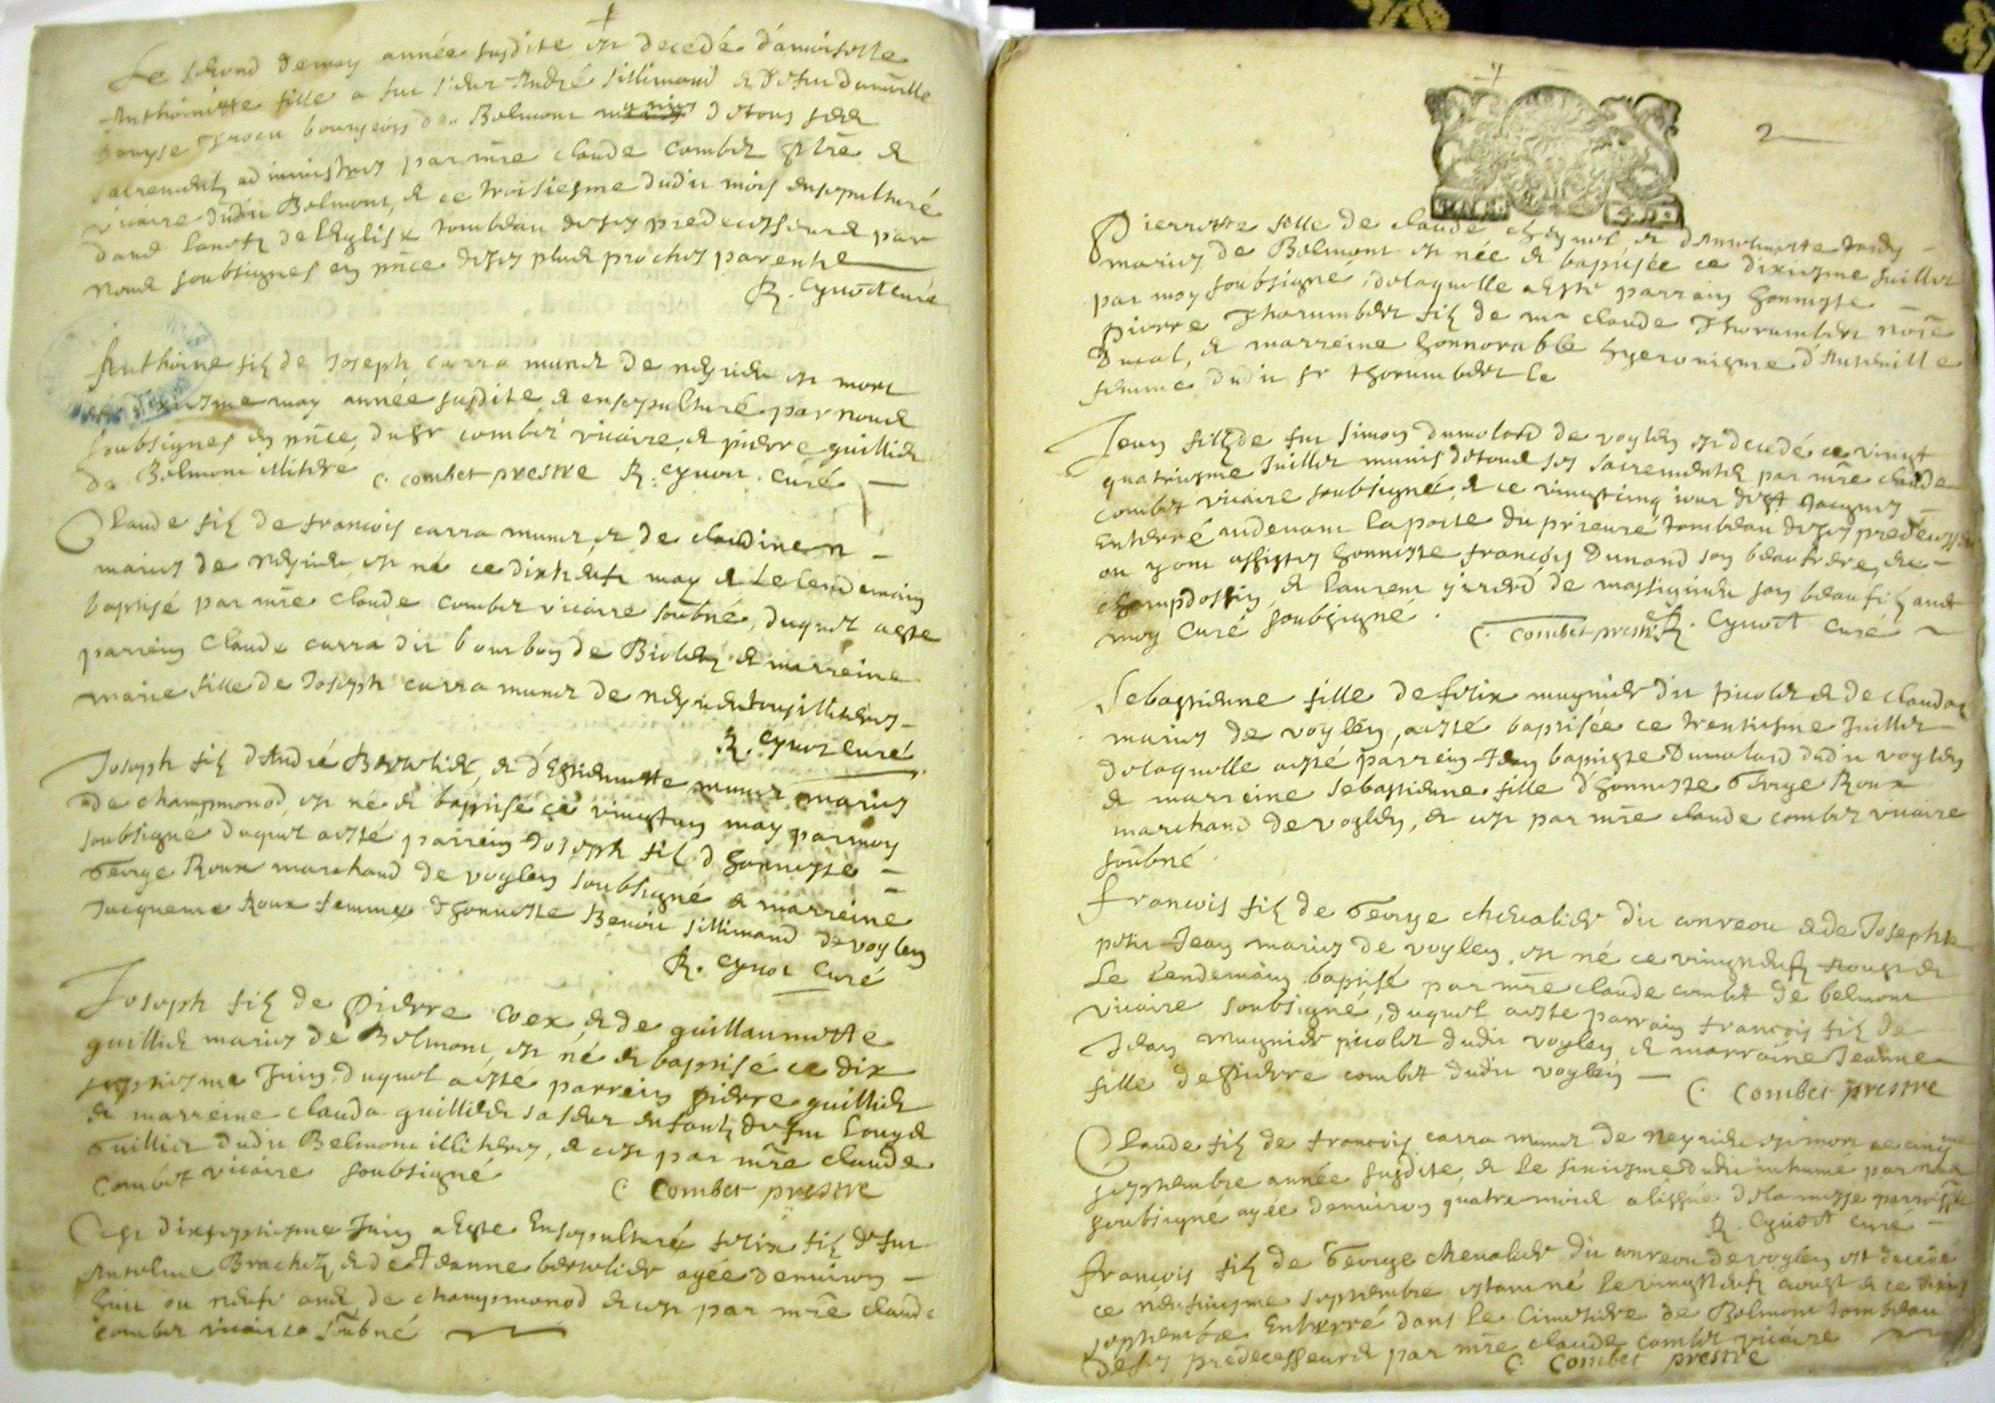 Le second de may année susdite est decedé damoiselle
Anthoinette fille a feu sieur André sillimand & de feu dam̄lle
bourgeois de Belmont de tous ses
sacrements administres par mr̄e claude combet ptr̄e &
vicaire dudit Belmont, & ce troisiesme dudit mois ensepulturé
dans l'eglise tombeau de ses predecesseurs par
nous soubsignes en pn̄ce de ses plus proches parents
R. Cynot curé
Anthoine fils de Joseph carra munet de neyrieu est mort
may année susdite & ensepulturé par nous
soubsignes en pn̄ce du sr combet vicaire & pierre guillier
de Belmont illiteré C. combet prestre R. cynot curé
Claude fils de francois carra munet, & de claudine
maries de neyrieu est né ce dixneuf may & le lendemain
baptisé par mr̄e claude combet vicaire soubn̄é, duquel a este
parrein claude carra dit bourbon de & marreine
marie fille de Joseph carra munet de neyrieu tous illiteres
R. Cynot curé
Joseph fils d'André Berthelier, & d'Estiennette munet maries
de champmonod, est né & baptisé ce vingtun may par moy
soubsigne, duquel a esté parrein Joseph fils d'honneste
George Roux marchand de voglen soubsigné & marreine
Jacqueme Roux femme d'honneste Benoit sillimand de voglen
R. Cynot Curé
Joseph fils de Pierre coex, & de guillaumette
guillier maries de Belmont, est né & baptisé ce dix
septiesme Juin, duquel a esté parrein pierre guillier
& marreine clauda guillier sa seur enfants de feu Louys
Guillier dudit Belmont illiteres, & c'est par mr̄e claude
Combet vicaire soubsigné
C combet prestre
Cest dixseptiesme Juin a este ensepulturé felix fils de feu
Antelme Brachet, & de Jeanne berthelier agée d'environ
huit ou neuf ans, de champmonod & c'est par mr̄e claude
combet vicaire soubn̄é
2
Pierrette fille de claude cheynel & d'Anthoinette
maries de Belmont est née & baptisée ce dixiesme Juillet
par moy soubsigné, de laquelle a esté parrain honneste
pierre Thorumbert fils de mr claude Thorumbert not̄re
ducal, & marreine honnorable hyeronisme d'Anteville
femme dudit sr thorumbert
Jean fils de feu simon dumolard de voglen est decedé ce vingt
quatriesme Juillet munis de tous ses sacrements par mr̄e claude
combet vicaire soubsigné, & ce vingtcinq jour de st Jacques
Enterré audevant la porte du prieuré tombeau de ses predecesseurs
ou y ont assistes honneste francois Dunand son beau frere, de
champdossin, & laurent girerd de massignieu son beau fils avec
moy curé soubsigné.
C. combet prestre R. Cynot curé
Sebastienne fille de felix mugnier dit picolet & de clauda
maries de voglen, a esté baptisée ce trentiesme Juillet
de laquelle a esté parrein Jean baptiste Dumolard dudit voglen
& marreine sebastienne fille d'honneste George Roux
marchand de voglen, & c'est par mr̄e claude combet vicaire
soubn̄é
francois fils de George chevalier dit convrou & de Josephte
petit Jean maries de voglen, est né ce vingtneuf Aougst &
le lendemain baptisé par mr̄e claude combet de belmont
vicaire soubsigné, duquel a este parrain francois fils de
Jean mugnier picolet dudit voglen, & marraine Jeanne
fille de Pierre combet dudit voglen
C. combet prestre
Claude fils de francois carra munet de Neyrieu est mort ce cinq
septembre année susdite, & le sixiesme dudit inhumé par moy
soubsigné agée d'environ quatre mois a l'issue de la messe
R. Cynot curé
francois fils de George chevalier dit convrou de voglen est decede
ce neufviesme septembre estant né le vingtneuf aougst & ce
septembre Enterré dans le cimetiere de Belmont tombeau
de ses predecesseurs par mr̄e claude combet vicaire
C. combet prestre